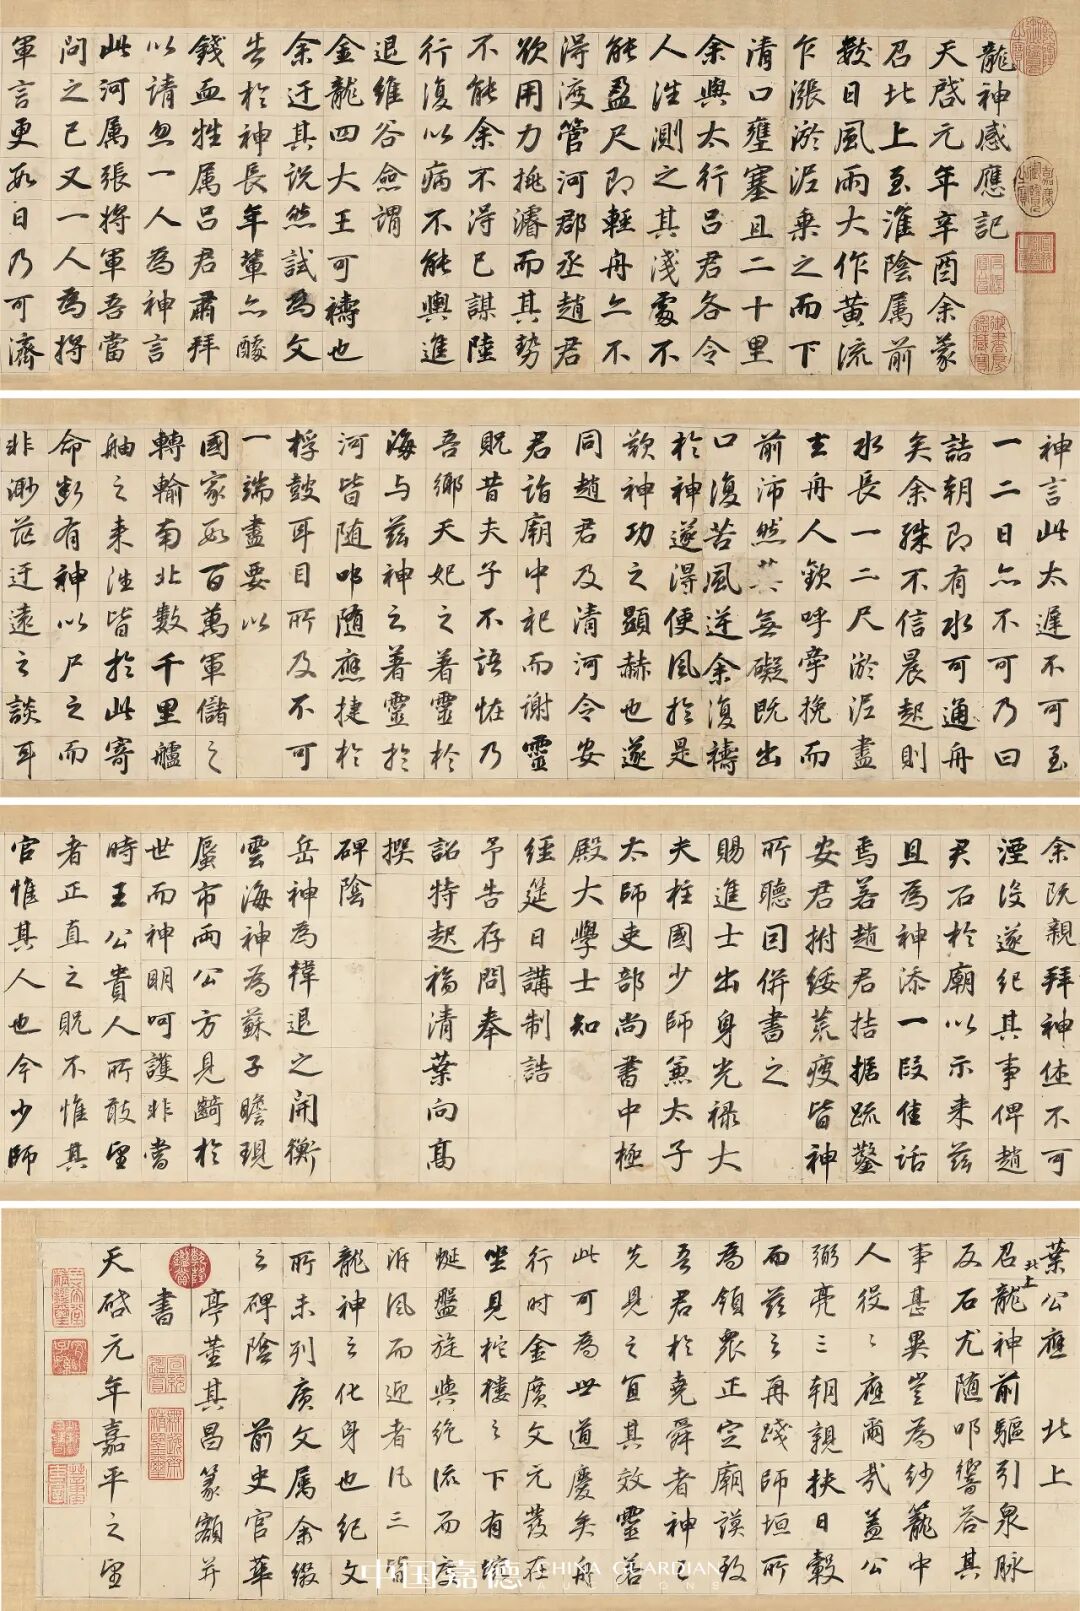 龍神感應記
天啓元年辛酉余蒙
召北上至淮陰属前
數日風雨大作黄流
乍漲淤泥乗之而下
清口壅塞且二十里
余與太行吕君各令
人往測之其淺處不
能盈尺即輕舟亦不
得渡管河郡丞趙君
欲用力挑濬而其勢
不能余不得已謀陸
行復以病不能輿進
退維谷僉謂
金龍四大王可禱也
余迂其說然試為文
告於神長年輩亦醵
錢血牲属吕君肅拜
以請忽一人為神言
此河属張將軍吾當
問之已又一人為將
軍言更數日乃可濟
神言此太遲不可至
一二日亦不可乃曰
詰朝即有水可通舟
矣余殊不信晨起則
水長一二尺淤泥盡
去舟人歡呼牽挽而
前沛然無礙既出
口復苦風逆余復禱
於神遂得便風於是
歎神功之顯赫也遂
同趙君及清河令安
君詣廟中祀而謝靈
貺昔夫子不語怪乃
吾鄉天妃之著靈於
海与兹神之著靈於
河皆随叩随應捷於
桴鼓耳目所及不可
一端盡要以
國家數百萬軍儲之
轉輸南北數千里艫
舳之来往皆於此寄
命斷有神以尸之而
非渺茫迂遠之談耳
余既親拜神休不可
湮没遂紀其事俾趙
君石於廟以示来兹
且為神添一段佳話
焉若趙君拮据疏鑿
安君拊綏荒瘦皆神
所聽因併書之
賜進士出身光禄大
夫柱國少師兼太子
太師吏部尚書中極
殿大學士知
經筵日講制誥
予告存問奉
詔特起福清葉向高
撰
碑陰
岳神為韓退之開衡
雲海神為蘇子瞻現
蜃市兩公方見齮於
世而神明呵護非當
時王公貴人所敢望
者正直之貺不惟其
官惟其人也今少師
葉公應 北上
召龍神前驅引泉脉
北上
反石尤随叩響答其
事甚異豈為紗籠中
人役役應爾哉蓋公
弼亮三朝親扶日轂
而兹之再踐師垣所
為領衆正定廟謨致
吾君於堯舜者神已
先見之宜其效靈若
此可為世道慶矣舟
行時金廣文元發在
坐見柁樓之下有
蜒盤旋與絶流而度
泝風而迎者凡三皆
龍神之化身也紀文
所未列廣文属余綴
之碑陰 前史官華
亭董其昌篆額并
書
天啓元年嘉平之望
中国嘉德 CHINA GUARDIAN
AUCTIONS